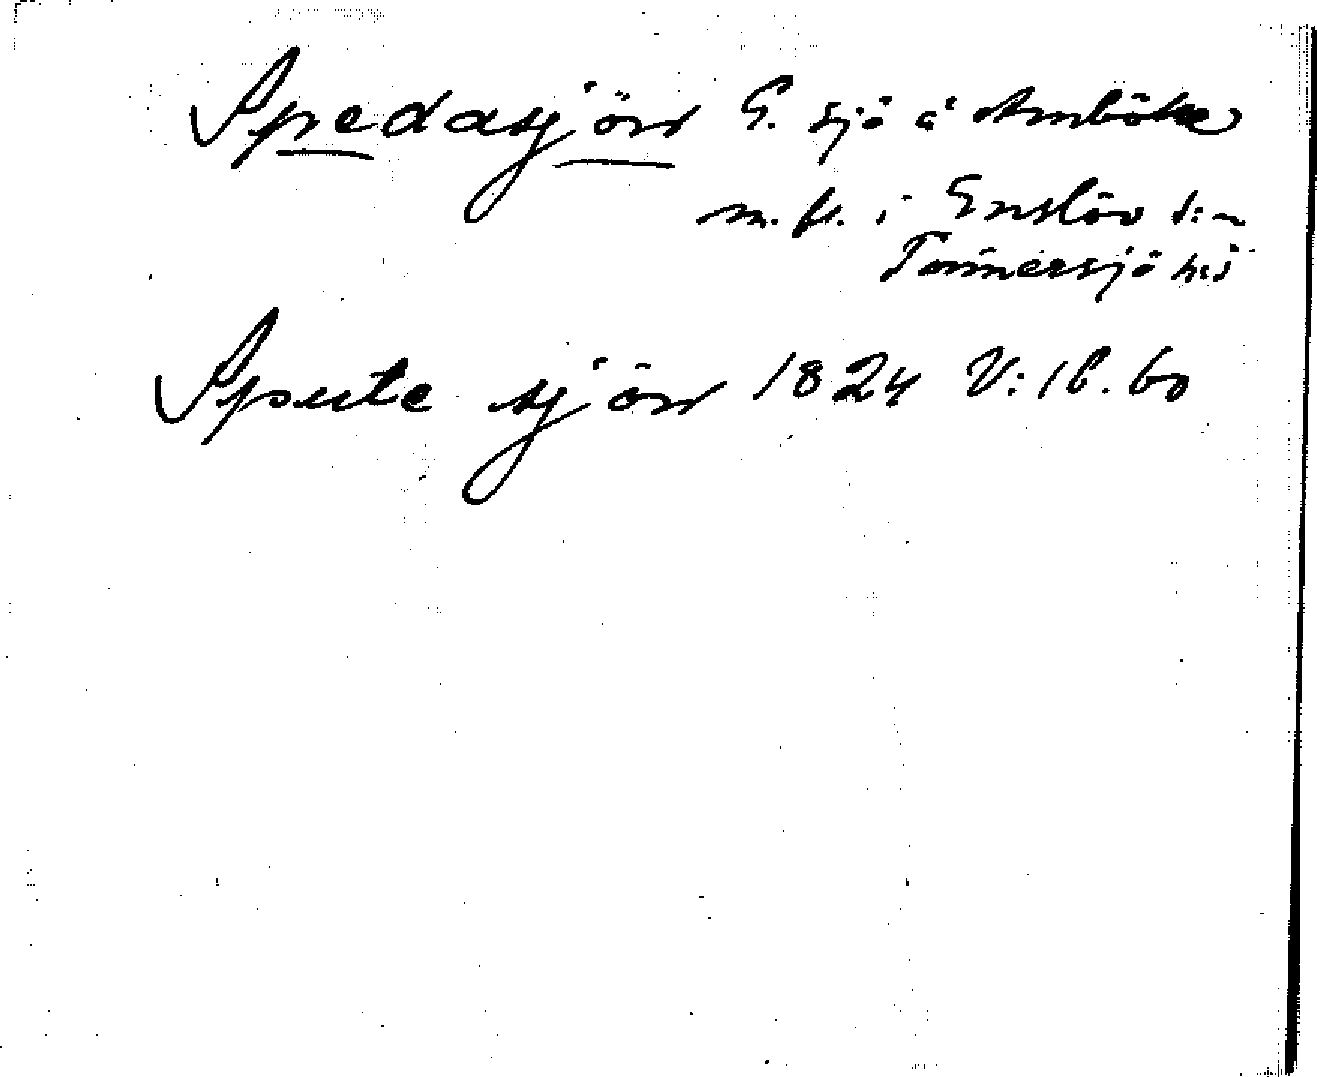 Spedasjön G. sjö å Amböke
m.fl. i Enslöv s:n
Tönnersjö hd
Spute sjön 1824 V: 18. 60